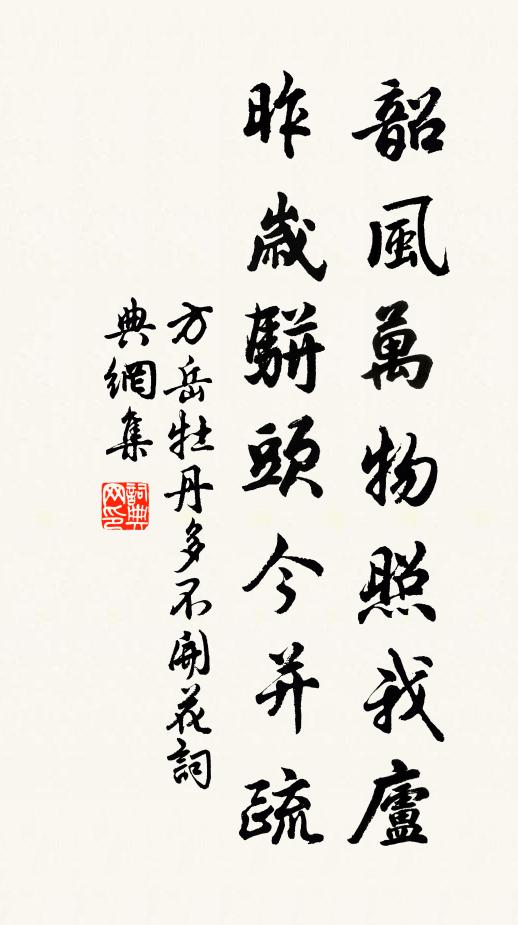 韶風萬物照我廬
昨歲駢頭今并疏
方岳牡丹多不開花詞
典網集
詞典網印